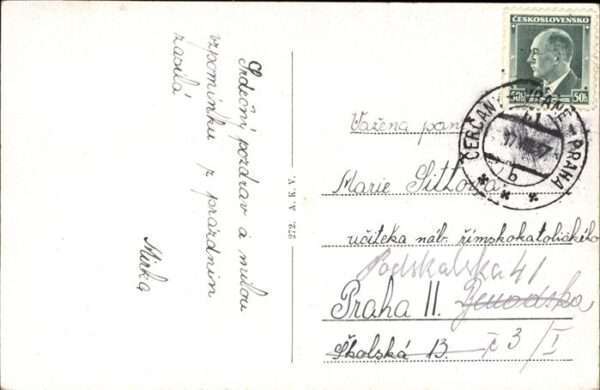 Srdečný pozdrav a milou
vzpomínku z prázdnin
zasílá
Mirka
272. A. K. V.
ČESKOSLOVENSKO
50h 50h
ČERČANY PRAHA
Vážená paní
Marie Sittová
učitelka náb. římskokatolického
Podskalská 41
Praha II.
Školská 13. č 3/I